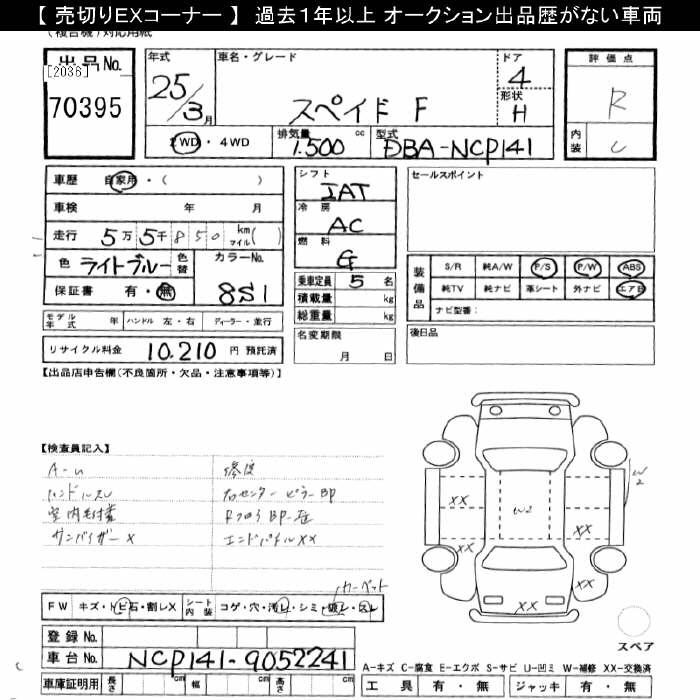 【 売切りEXコーナー 】 過去1年以上 オークション出品歴がない車両
(複合機) 対応用紙
出品No.
[2036]
70395
年式
25/3月
車名・グレード
スペイド F
ドア
4
形状
H
2WD・4WD
排気量
1.500 cc
型式
DBA-NCP141
評価点
R
内装
C
車歴 自家用・( )
車検 年 月
走行 5万5千850 km マイル( )
色 ライトブルー 色替
カラーNo.
8S1
保証書 有・無
シフト
IAT
冷房
AC
燃料
G
乗車定員 5 名
積載量 kg
総重量 kg
セールスポイント
装備品
S/R 純A/W P/S P/W ABS
純TV 純ナビ 革シート 外ナビ エアB
ナビ型番:
モデル年式 年 ハンドル 左・右 ディーラー・並行
リサイクル料金 10.210 円 預託済
名変期限
月 日
後日品
【出品店申告欄(不良箇所・欠品・注意事項等)】
【検査員記入】
A-u
修復
ハンドルスレ
右センターピラーBP
室内毛付着
RフロアBP-歪
サンバイザーX
エンドパネルXX
カーペット
FW キズ・トビ石・割レX シート内装 コゲ・穴・汚レ・シミ・破レ・スレ
W2
XX
W2
XX
XX
XX
XX
スペア
登録No.
車台No. NCP141-9052241
車庫証明用 長さ cm 幅 cm 高さ cm
A-キズ C-腐食 E-エクボ S-サビ U-凹ミ W-補修 XX-交換済
工具 有・無 ジャッキ 有・無